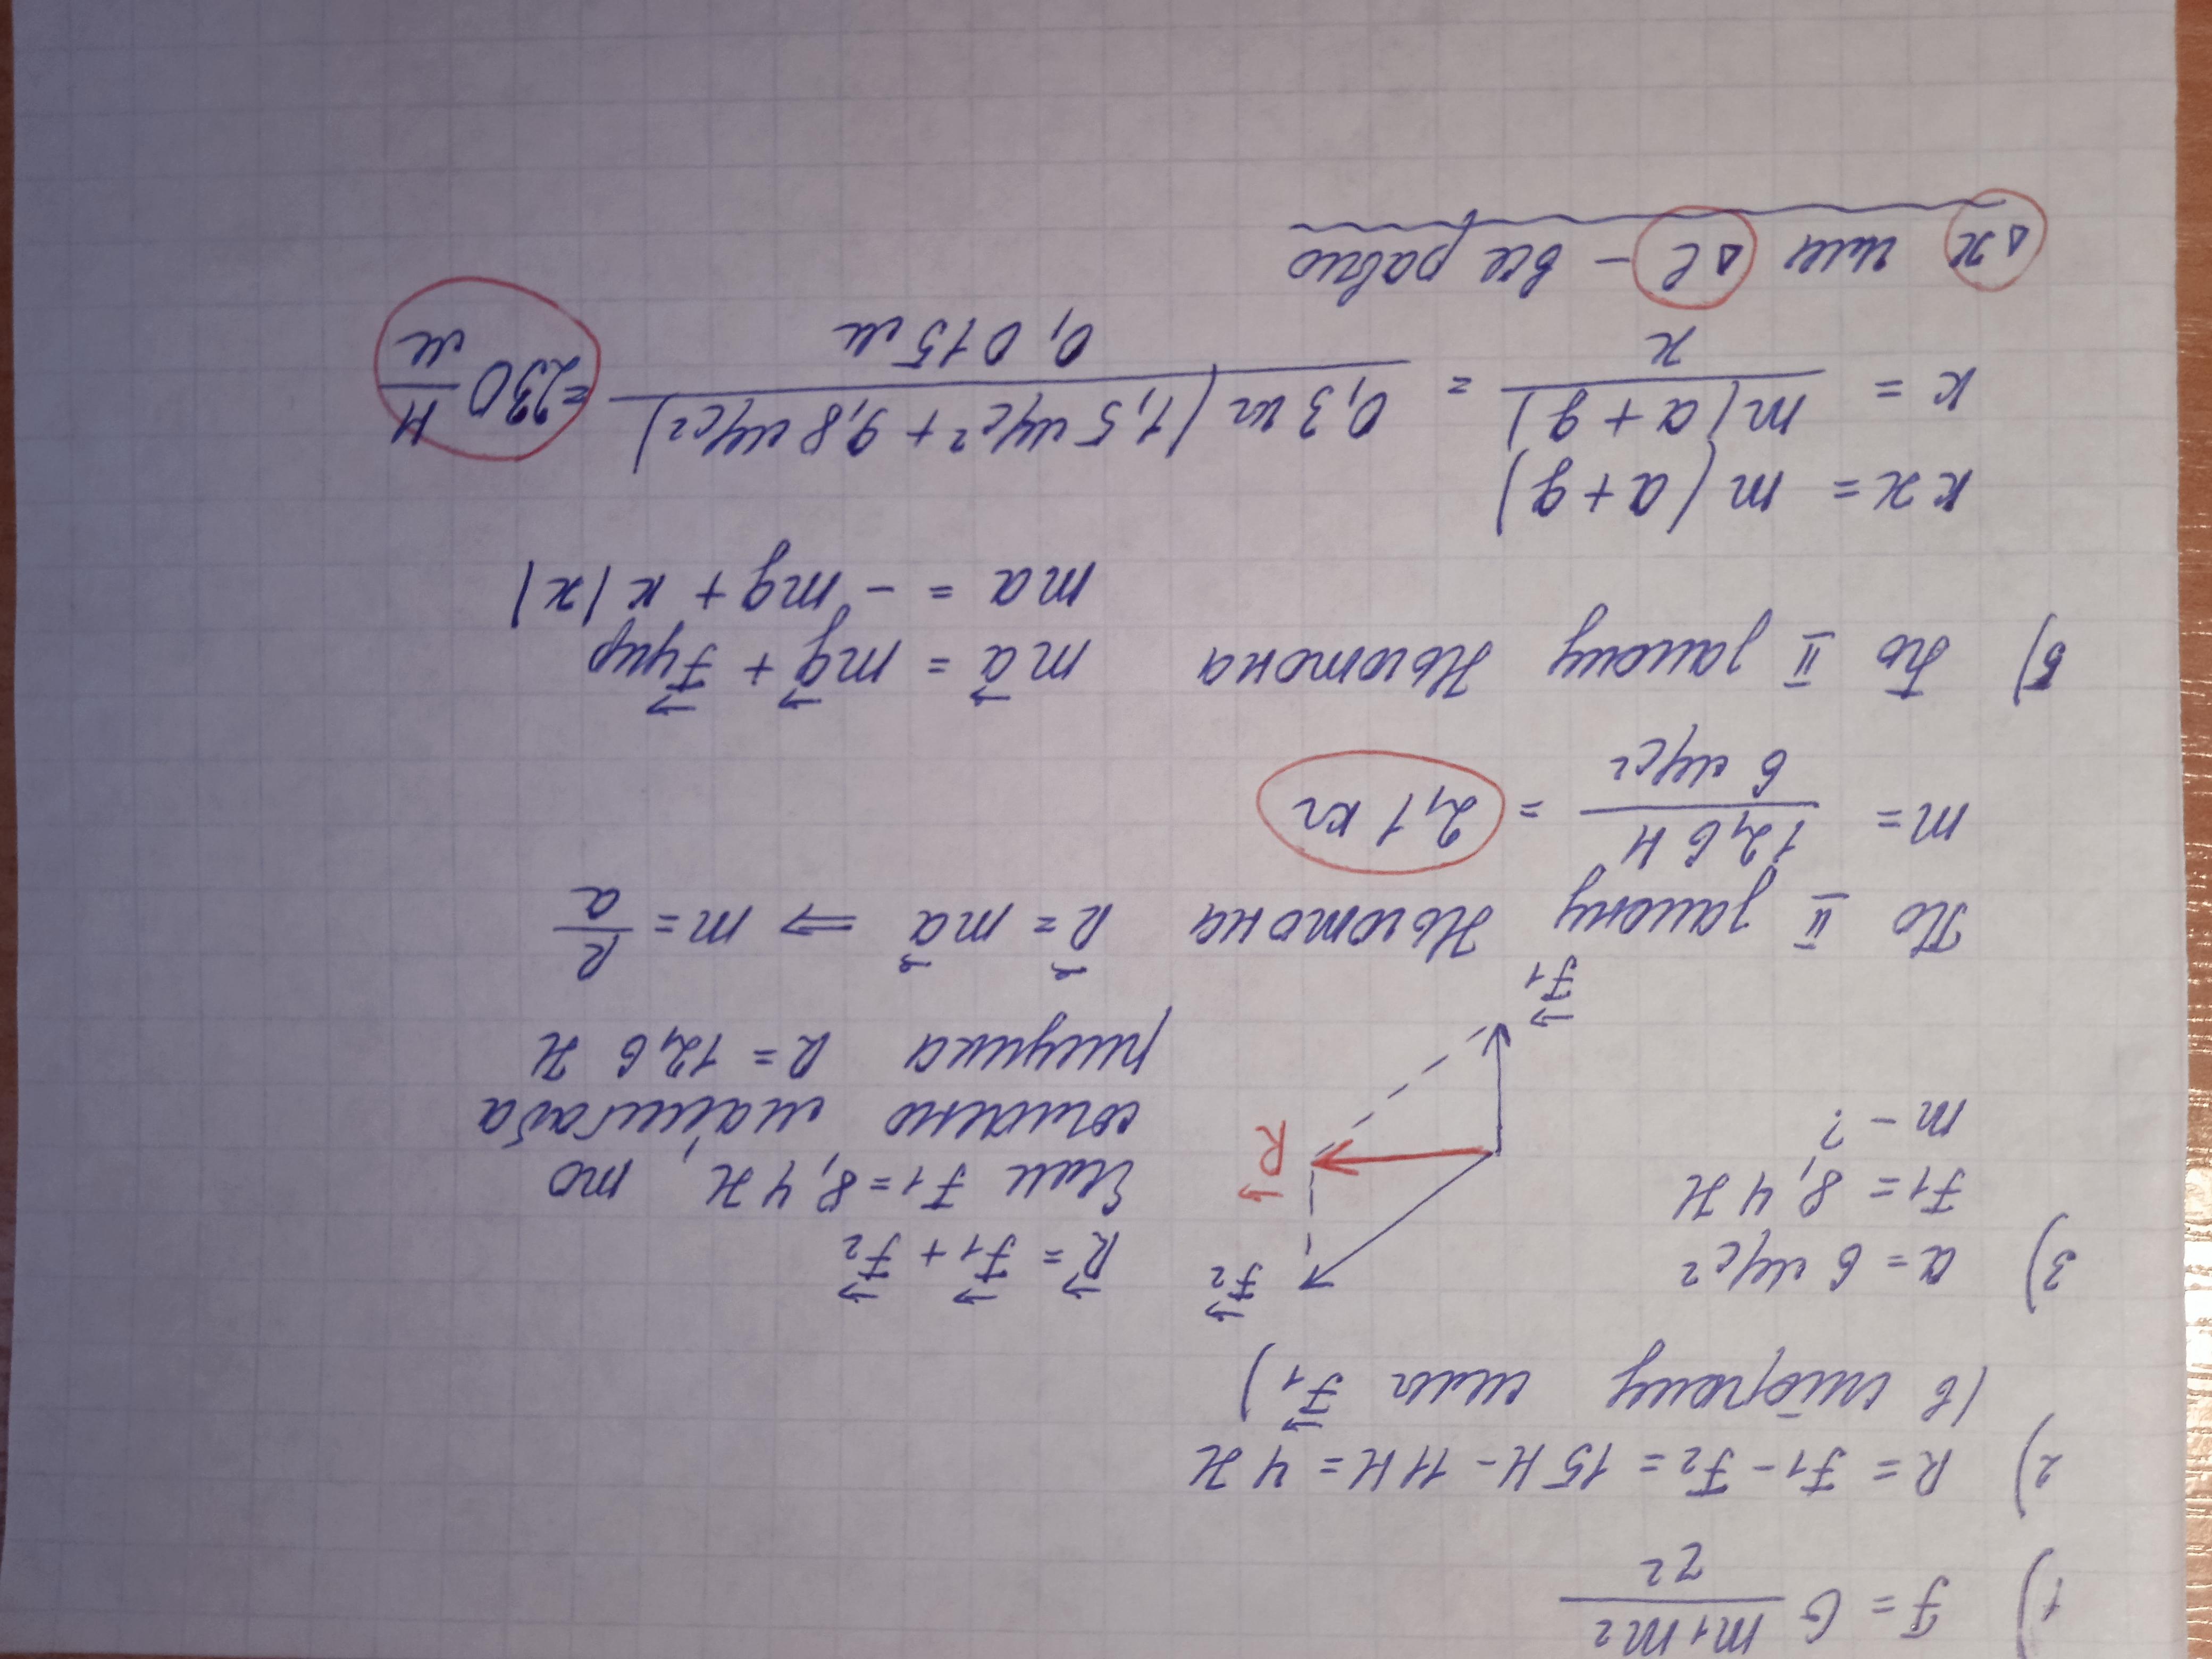 1) F = G m1m2 / r2
2) R = F1 - F2 = 15 Н - 11 Н = 4 Н
(в сторону силы F1)
3) a = 6 м/с2
F1 = 8,4 Н
m - ?
F2
R
F1
R = F1 + F2
Если F1 = 8,4 Н, то
согласно масштаба
рисунка R = 12,6 Н
По II закону Ньютона R = ma ⇒ m = R / a
m = 12,6 Н / 6 м/с2 = 2,1 кг
5) По II закону Ньютона ma = mg + Fупр
ma = - mg + k |x|
kx = m (a + g)
k = m(a + g) / x = 0,3 кг (1,5 м/с2 + 9,8 м/с2) / 0,015 м = 230 Н / м
Δx или Δl - все равно